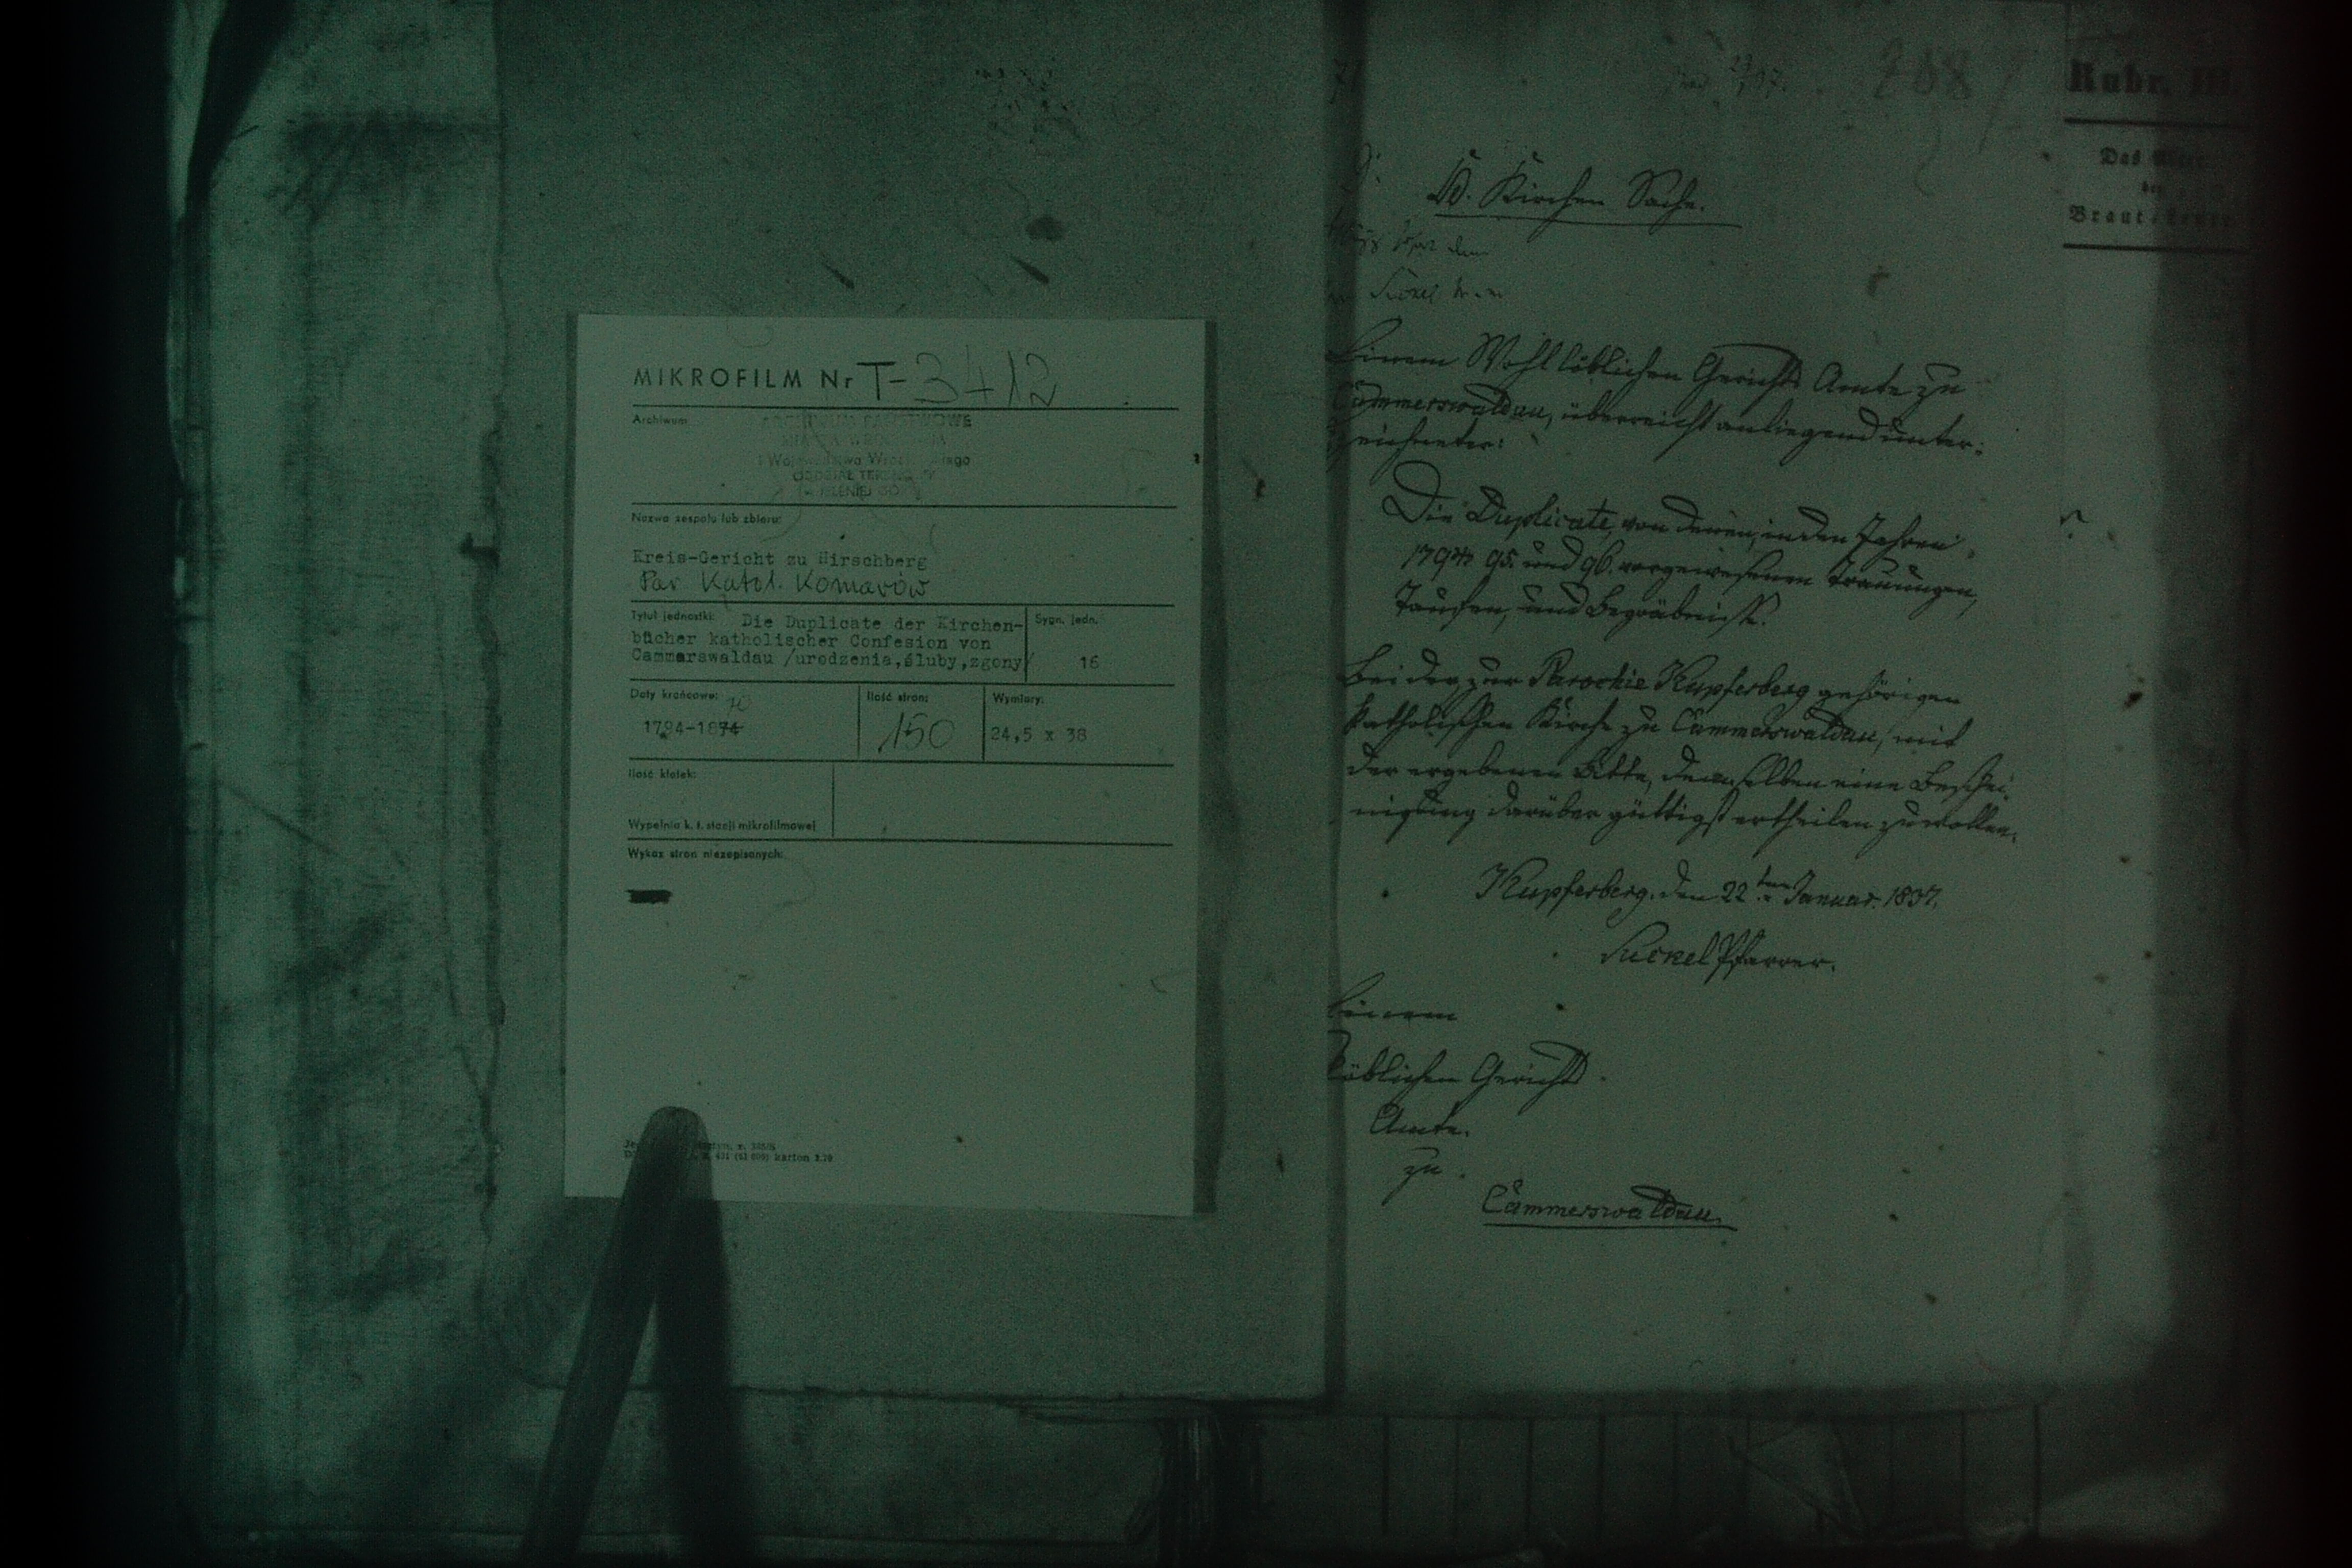 MIKROFILM Nr T-3412
Archiwum
ARCHIWUM PAŃSTWOWE
MIASTA WROCŁAWIA
i Województwa
ODDZIAŁ
Nazwa zespołu lub zbioru:
Kreis-Gericht zu Hirschberg
Par Katol. Komarów
Tytuł jednostki: Die Duplicate der Kirchen-
bücher katholischer Confesion von
Cammerswaldau /urodzenia,śluby,zgony/
Sygn. jedn.
16
Daty krańcowe:
70
1794-1874
Ilość stron:
150
Wymiary:
24,5 x 38
Ilość klatek:
Wypełnia k. t. stacji mikrofilmowej
Wykaz stron niezapisanych:
karton 2.70
Kirchen Sache.
Einem Wohllöblichen Gerichts Amte zu
Cammerswaldau, überreicht anliegend unter:
zeichneter:
Die Duplicate, von denen, in den Jahren
1794, 95. und 96. vorgewesenen Trauungen,
Taufen, und Begräbnisse.
Bei der zur Parochie Kupferberg gehörigen
katholischen Kirche zu Cammerswaldau, mit
der ergebenen Bitte, demselben eine Beschei:
nigung darüber gültigst ertheilen zu wollen.
Kupferberg, den 22ten Januar. 1837.
Suckel Pfarrer.
Einem
Löblichen Gerichts
Amte.
zu
Cammerswaldau.
Rubr. III
Das
der
Braut